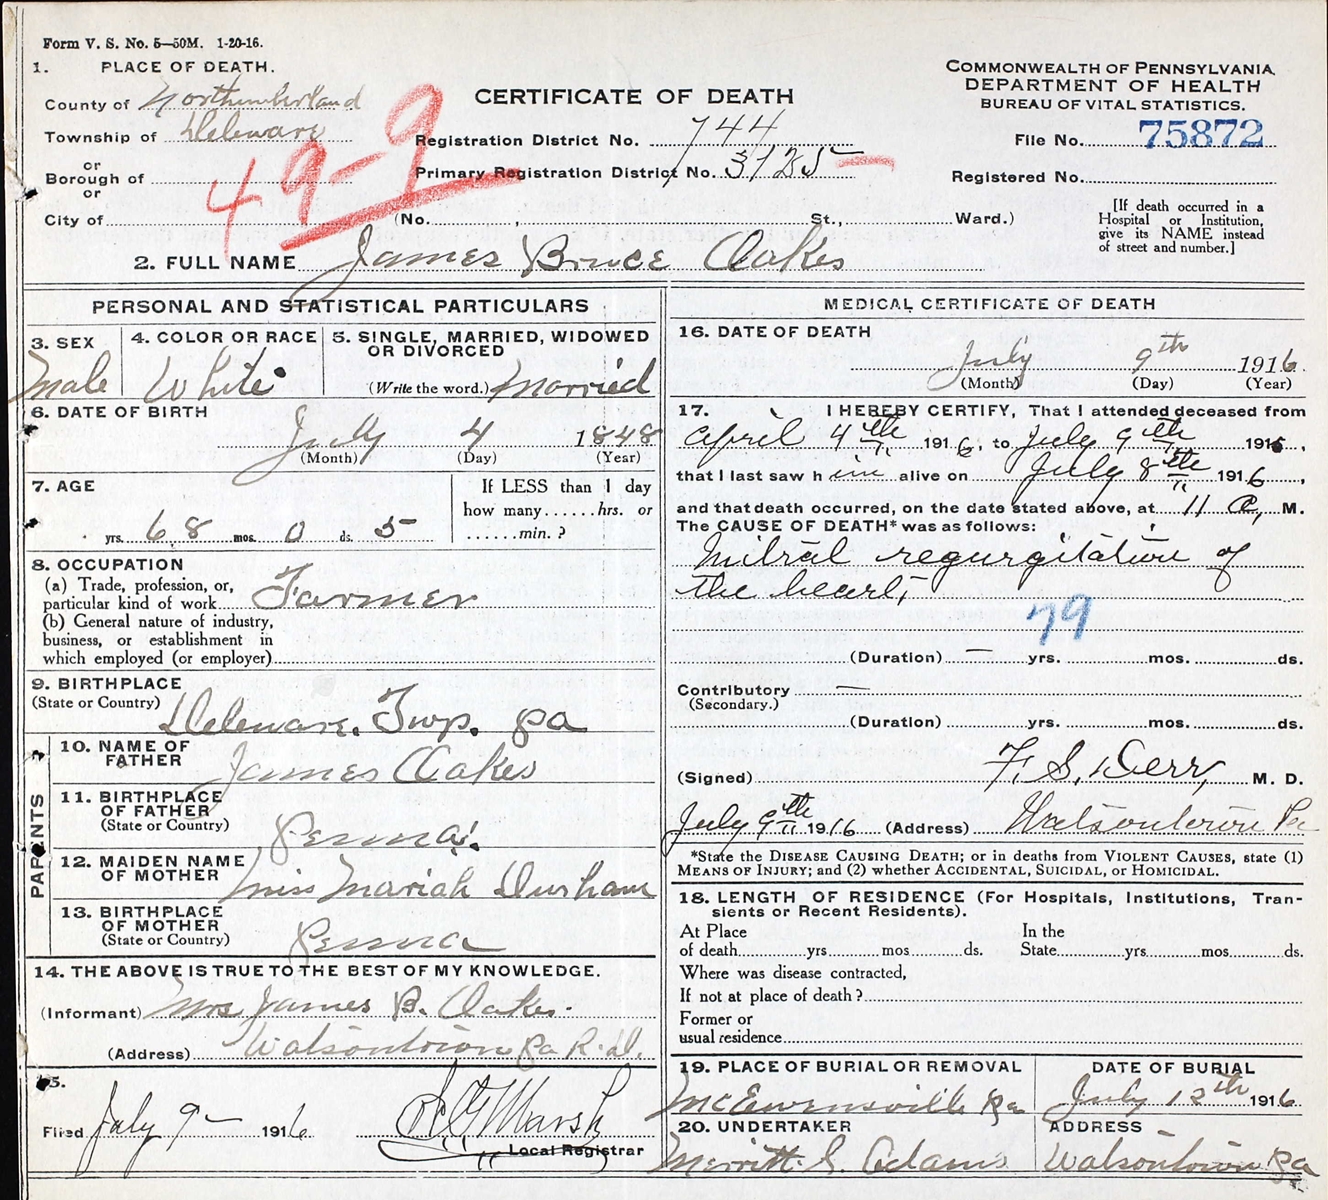 Form V. S. No. 5—50M. 1-20-16.
1. PLACE OF DEATH.
County of Northumberland
Township of Deleware
or
Borough of
or
City of
49-9
CERTIFICATE OF DEATH
Registration District No. 744
Primary Registration District No. 3125 —
(No. St., Ward.)
COMMONWEALTH OF PENNSYLVANIA.
DEPARTMENT OF HEALTH
BUREAU OF VITAL STATISTICS.
File No. 75872
Registered No.
[If death occurred in a
Hospital or Institution,
give its NAME instead
of street and number.]
2. FULL NAME James Bruce Oakes
PERSONAL AND STATISTICAL PARTICULARS
3. SEX
Male
4. COLOR OR RACE
White
5. SINGLE, MARRIED, WIDOWED
OR DIVORCED
(Write the word.) Married
6. DATE OF BIRTH
July 4 1848
(Month) (Day) (Year)
7. AGE
yrs. 68 mos. 0 ds. 5
If LESS than 1 day
how many......hrs. or
......min. ?
8. OCCUPATION
(a) Trade, profession, or,
particular kind of work Farmer
(b) General nature of industry,
business, or establishment in
which employed (or employer)
9. BIRTHPLACE
(State or Country)
Deleware. Twp. Pa
PARENTS
10. NAME OF
FATHER
James Oakes
11. BIRTHPLACE
OF FATHER
(State or Country)
Penna.
12. MAIDEN NAME
OF MOTHER
Miss Mariah Durham
13. BIRTHPLACE
OF MOTHER
(State or Country)
Penna
14. THE ABOVE IS TRUE TO THE BEST OF MY KNOWLEDGE.
(Informant) Mrs James B. Oakes.
(Address) Watsontown Pa R.D.
15.
Filed July 9— 1916
Marsh
Local Registrar
MEDICAL CERTIFICATE OF DEATH
16. DATE OF DEATH
July 9th 1916
(Month) (Day) (Year)
17. I HEREBY CERTIFY, That I attended deceased from
April 4th 1916. to July 9th 1916,
that I last saw h im alive on July 8th 1916,
and that death occurred, on the date stated above, at 11 a. M.
The CAUSE OF DEATH* was as follows:
Mitral regurgitation of
the heart,
79
(Duration) — yrs. mos. ds.
Contributory —
(Secondary.)
(Duration) yrs. mos. ds.
(Signed) F. S. Derr, M. D.
July 9th 1916 (Address) Watsontown Pa
*State the DISEASE CAUSING DEATH; or in deaths from VIOLENT CAUSES, state (1)
MEANS OF INJURY; and (2) whether ACCIDENTAL, SUICIDAL, or HOMICIDAL.
18. LENGTH OF RESIDENCE (For Hospitals, Institutions, Tran-
sients or Recent Residents).
At Place In the
of death yrs. mos ds. State yrs. mos. ds.
Where was disease contracted,
If not at place of death ?
Former or
usual residence
19. PLACE OF BURIAL OR REMOVAL
McEwensville Pa
DATE OF BURIAL
July 12th 1916
20. UNDERTAKER
Merritt S. Adams
ADDRESS
Watsontown Pa